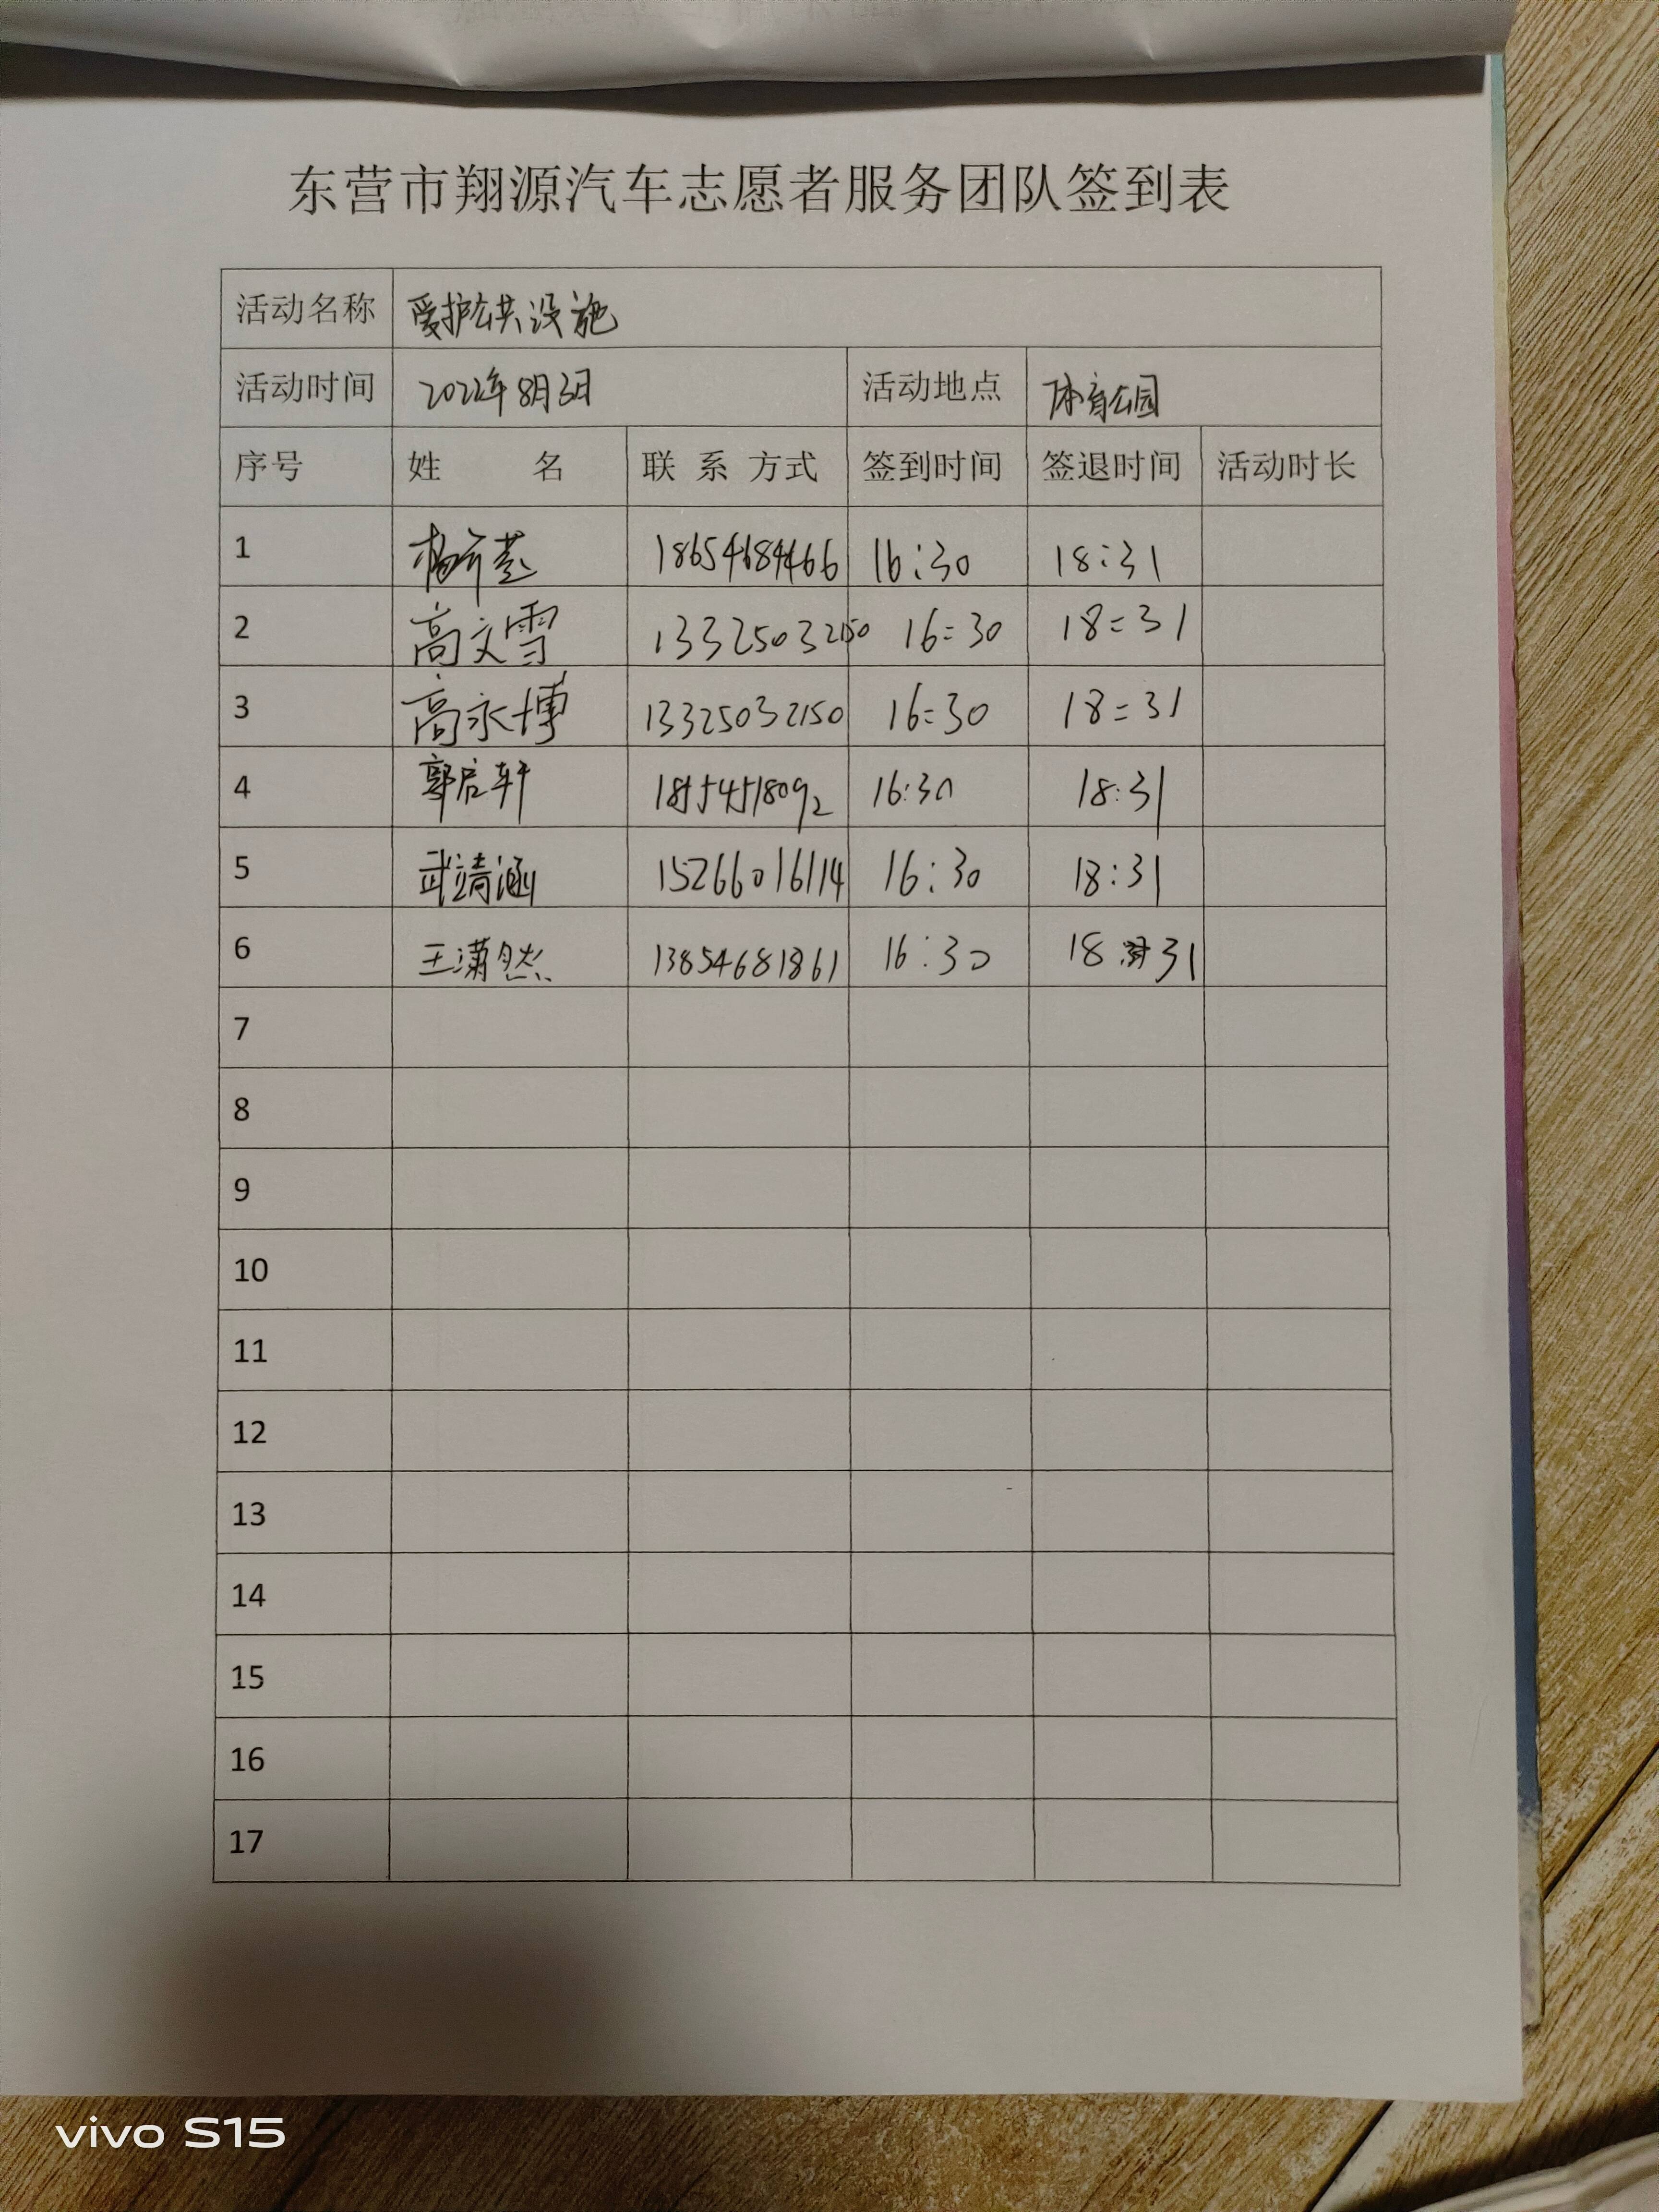 东营市翔源汽车志愿者服务团队签到表
活动名称 爱护公共设施
活动时间 2022年8月3日 活动地点 体育公园
序号 姓 名 联 系 方式 签到时间 签退时间 活动时长
1 18654684466 16:30 18:31
2 高文雪 13325032150 16:30 18:31
3 高永博 13325032150 16:30 18:31
4 郭启轩 16:30 18:31
5 武靖涵 15266016114 16:30 18:31
6 王潇然 13854681861 16:30 18:31
7
8
9
10
11
12
13
14
15
16
17
vivo S15